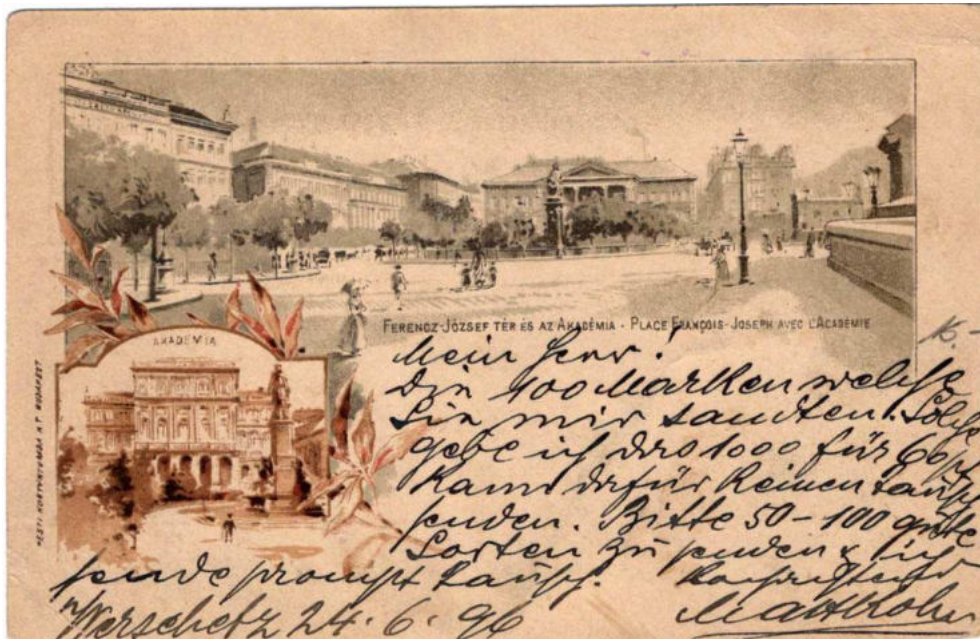 FERENCZ-JÓZSEF TÉR ÉS AZ AKADÉMIA · PLACE FRANÇOIS-JOSEPH AVEC L'ACADÉMIE
AKADÉMIA
PESTI KÖNYVNYOMDA R.T. BUDAPEST
Mein Herr!
Die 100 Marken welche
Sie mir sandten. Solche
gebe ich das 1000 für 60
Kann dafür keinen Tausch
senden. Bitte 50-100 gute
Sorten zu senden & ich
sende prompt Tausch.
Hochachtend
Werschetz 24. 6. 96